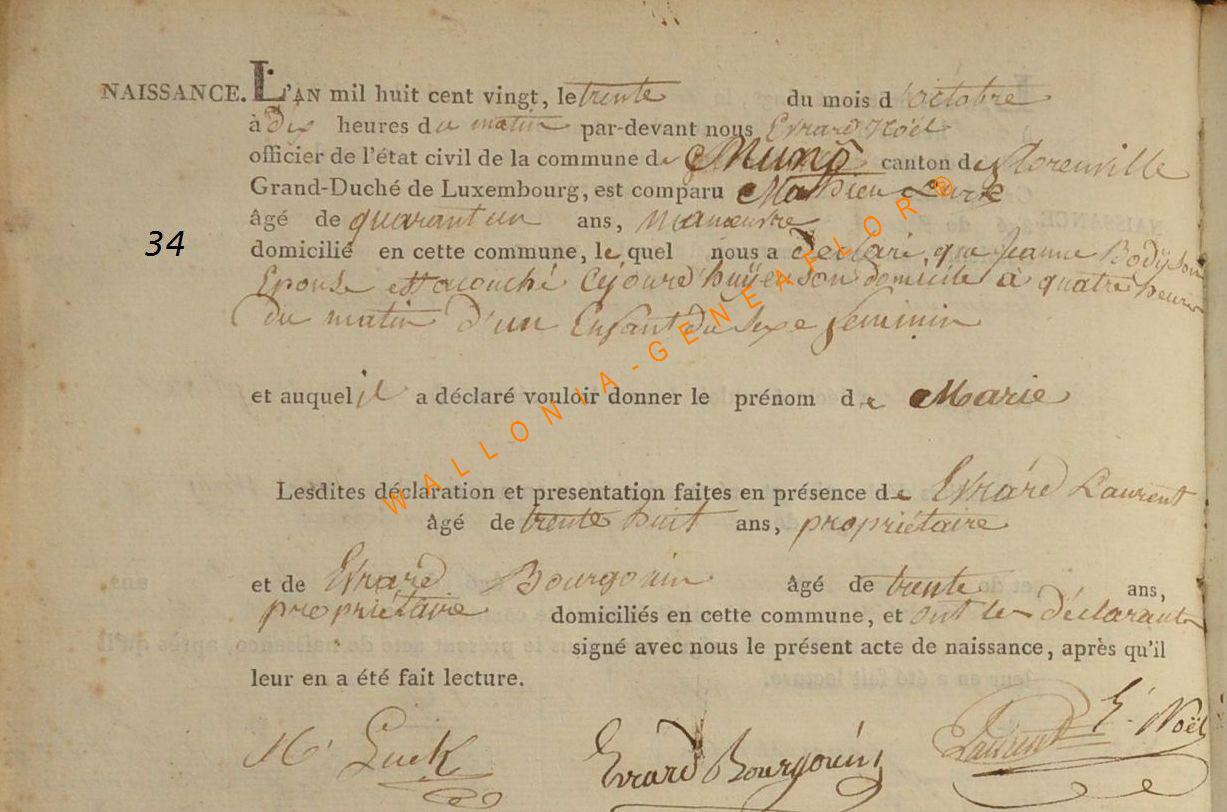 NAISSANCE. L'AN mil huit cent vingt, le trente du mois d'octobre
à Dix heures du matin par-devant nous Evrard Noël
officier de l'état civil de la commune de Muno canton de florenville
Grand-Duché de Luxembourg, est comparu Mathieu Luck
âgé de quarant un ans, Manœuvre
34
domicilié en cette commune, lequel nous a declaré, que Jeanne Bodÿ son
Epouse est acouché Cejourd'huÿ en son domicile à quatre heures
du matin d'un Enfant du Sexe feminin
et auquel il a déclaré vouloir donner le prénom de Marie
Lesdites déclaration et presentation faites en présence de Evrard Laurent
âgé de trente huit ans, propriétaire
et de Evrard Bourgouin âgé de trente ans,
propriétaire domiciliés en cette commune, et ont les déclarants
signé avec nous le présent acte de naissance, après qu'il
leur en a été fait lecture.
M Luck Evrard Bourgouin Laurent E. Noël
WALLONIA-GENEAFLOR®